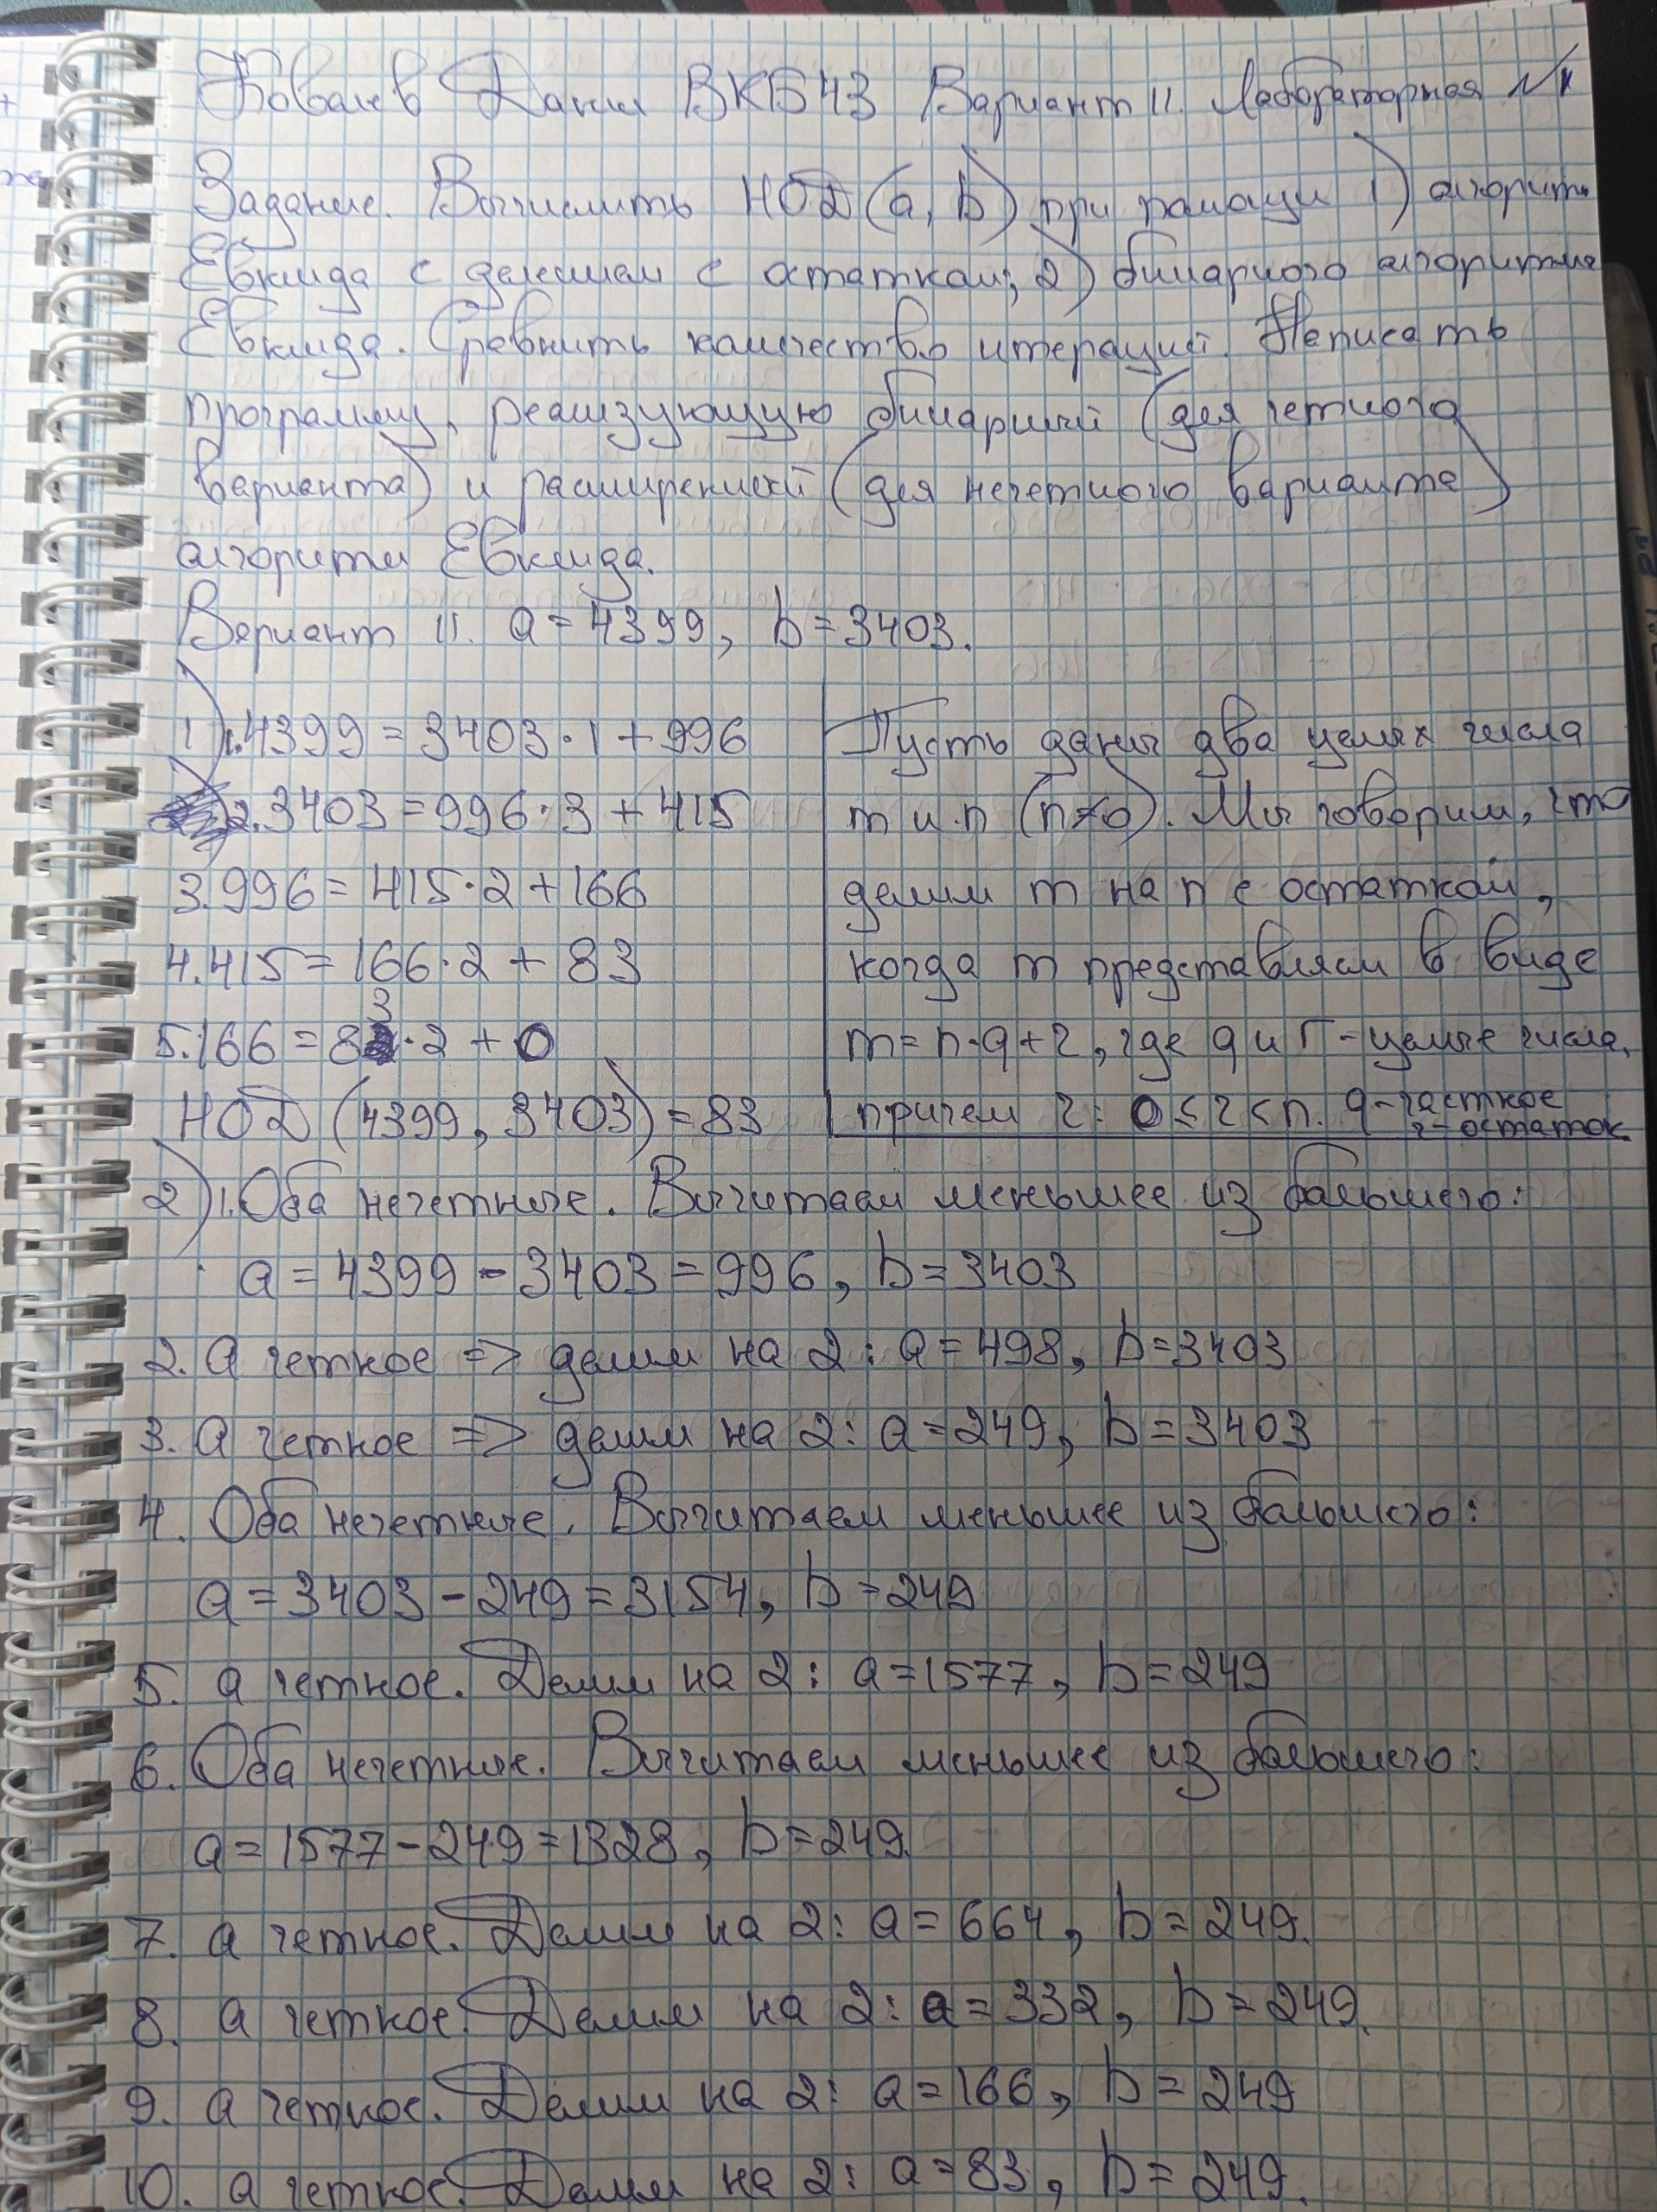 Ковалев Данил ВКБ43 Вариант 11. Лабораторная №1
Задание. Вычислить НОД(a, b) при помощи 1) алгоритм
Евклида с делением с остатком; 2) бинарного алгоритма
Евклида. Сравнить количество итераций. Написать
программу, реализующую бинарный (для четного
варианта) и расширенный (для нечетного варианта)
алгоритм Евклида.
Вариант 11. a = 4399, b = 3403.
1) 1. 4399 = 3403 · 1 + 996
2. 3403 = 996 · 3 + 415
3. 996 = 415 · 2 + 166
4. 415 = 166 · 2 + 83
5. 166 = 83 · 2 + 0
НОД (4399, 3403) = 83
Пусть даны два целых числа
m и n (n≠0). Мы говорим, что
делим m на n с остатком,
когда m представляем в виде
m = n·q + r, где q и r - целые числа,
причем r: 0 ≤ r < n. q - частное
r - остаток
2) 1. Оба нечетные. Вычитаем меньшее из большего:
a = 4399 - 3403 = 996, b = 3403
2. a четное => делим на 2: a = 498, b = 3403
3. a четное => делим на 2: a = 249, b = 3403
4. Оба нечетные. Вычитаем меньшее из большего:
a = 3403 - 249 = 3154, b = 249
5. a четное. Делим на 2: a = 1577, b = 249
6. Оба нечетные. Вычитаем меньшее из большего:
a = 1577 - 249 = 1328, b = 249.
7. a четное. Делим на 2: a = 664, b = 249.
8. a четное. Делим на 2: a = 332, b = 249.
9. a четное. Делим на 2: a = 166, b = 249
10. a четное. Делим на 2: a = 83, b = 249.